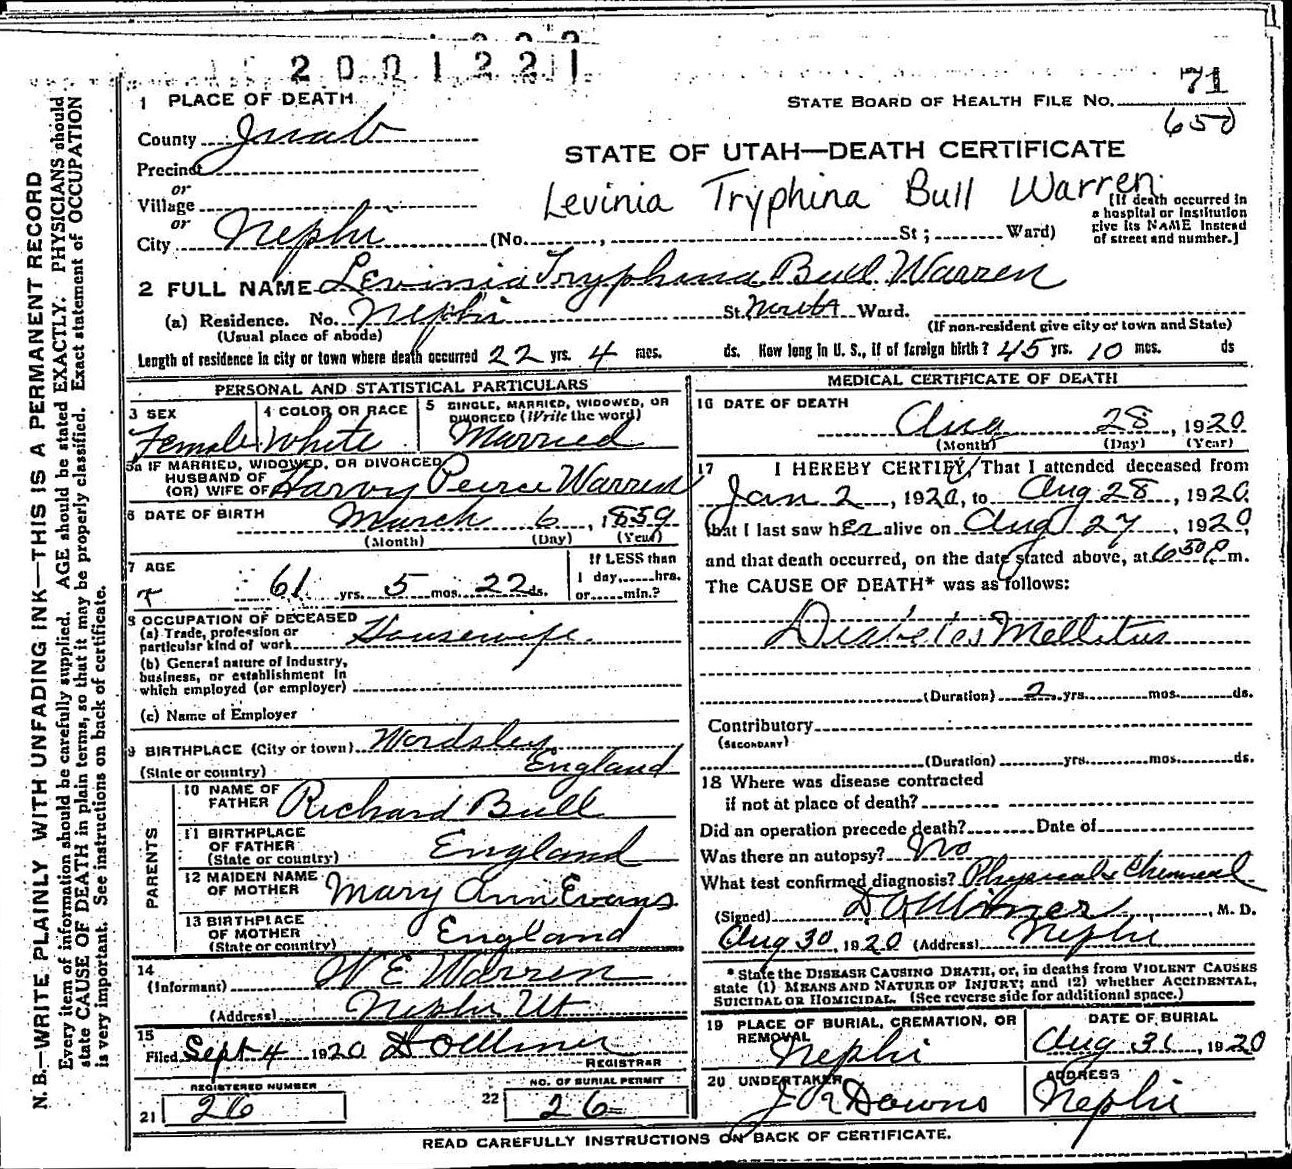 2001221
1 PLACE OF DEATH
STATE BOARD OF HEALTH FILE NO. 71
650
County Juab
Precinct
or
Village
or
City Nephi (No. , St ; Ward)
STATE OF UTAH—DEATH CERTIFICATE
Levinia Tryphina Bull Warren
[If death occurred in
a hospital or institution
give its NAME instead
of street and number.]
2 FULL NAME Levinia Tryphina Bull Warren
(a) Residence. No. Nephi St. North Ward.
(Usual place of abode) (If non-resident give city or town and State)
Length of residence in city or town where death occurred 22 yrs. 4 mos. ds. How long in U. S., if of foreign birth? 45 yrs. 10 mos. ds
PERSONAL AND STATISTICAL PARTICULARS
3 SEX Female
4 COLOR OR RACE White
5 SINGLE, MARRIED, WIDOWED, OR
DIVORCED (Write the word)
Married
5a IF MARRIED, WIDOWED, OR DIVORCED
HUSBAND OF
(OR) WIFE OF Harvy Peirce Warren
6 DATE OF BIRTH March 6, 1859
(Month) (Day) (Year)
7 AGE
61 yrs. 5 mos. 22 ds.
If LESS than
1 day,......hrs.
or......min.?
8 OCCUPATION OF DECEASED
(a) Trade, profession or
particular kind of work Housewife
(b) General nature of industry,
business, or establishment in
which employed (or employer)
(c) Name of Employer
9 BIRTHPLACE (City or town) Wordsley
(State or country) England
PARENTS
10 NAME OF
FATHER Richard Bull
11 BIRTHPLACE
OF FATHER
(State or country) England
12 MAIDEN NAME
OF MOTHER Mary Ann Evans
13 BIRTHPLACE
OF MOTHER
(State or country) England
14
(Informant) W E Warren
(Address) Nephi Ut
15
Filed Sept 4 1920
REGISTRAR
REGISTERED NUMBER
21 26
NO. OF BURIAL PERMIT
22 26
MEDICAL CERTIFICATE OF DEATH
16 DATE OF DEATH
Aug 28, 1920
(Month) (Day) (Year)
17 I HEREBY CERTIFY, That I attended deceased from
Jan 2, 1920, to Aug 28, 1920
that I last saw her alive on Aug 27, 1920
and that death occurred, on the date stated above, at 6 30 P m.
The CAUSE OF DEATH* was as follows:
Diabetes Mellitus
(Duration) 2 yrs. mos. ds.
Contributory
(SECONDARY)
(Duration) yrs. mos. ds.
18 Where was disease contracted
if not at place of death?
Did an operation precede death? Date of
Was there an autopsy? No
What test confirmed diagnosis? Physical & Chemical
(Signed) , M. D.
Aug 30, 1920 (Address) Nephi
*State the DISEASE CAUSING DEATH, or, in deaths from VIOLENT CAUSES
state (1) MEANS AND NATURE OF INJURY; and (2) whether ACCIDENTAL,
SUICIDAL OR HOMICIDAL. (See reverse side for additional space.)
19 PLACE OF BURIAL, CREMATION, OR
REMOVAL
Nephi
DATE OF BURIAL
Aug 31, 1920
20 UNDERTAKER
Downs
ADDRESS
Nephi
READ CAREFULLY INSTRUCTIONS ON BACK OF CERTIFICATE.
N. B.—WRITE PLAINLY WITH UNFADING INK—THIS IS A PERMANENT RECORD
Every item of information should be carefully supplied. AGE should be stated EXACTLY. PHYSICIANS should
state CAUSE OF DEATH in plain terms, so that it may be properly classified. Exact statement of OCCUPATION
is very important. See instructions on back of certificate.